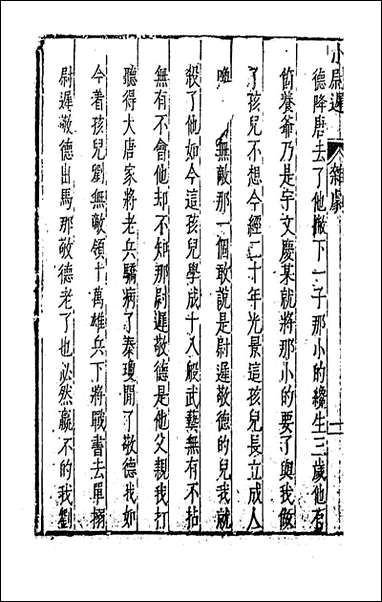 小尉遲 雜劇
德降唐去了他撇下一子那小的纔生三歲他有
箇養爺乃是宇文慶某就將那小的要了與我做
了孩兒不想今經二十年光景這孩兒長立成人
喚 無敵那一個敢說是尉遲敬德的兒我就
殺了他如今這孩兒學成十八般武藝無有不拈
無有不會他却不知那尉遲敬德是他父親我打
聽得大唐家將老兵驕病了秦瓊閒了敬德我如
今着孩兒劉無敵領十萬雄兵下將戰書去單搦
尉遲敬德出馬那敬德老了也必然贏不的我劉